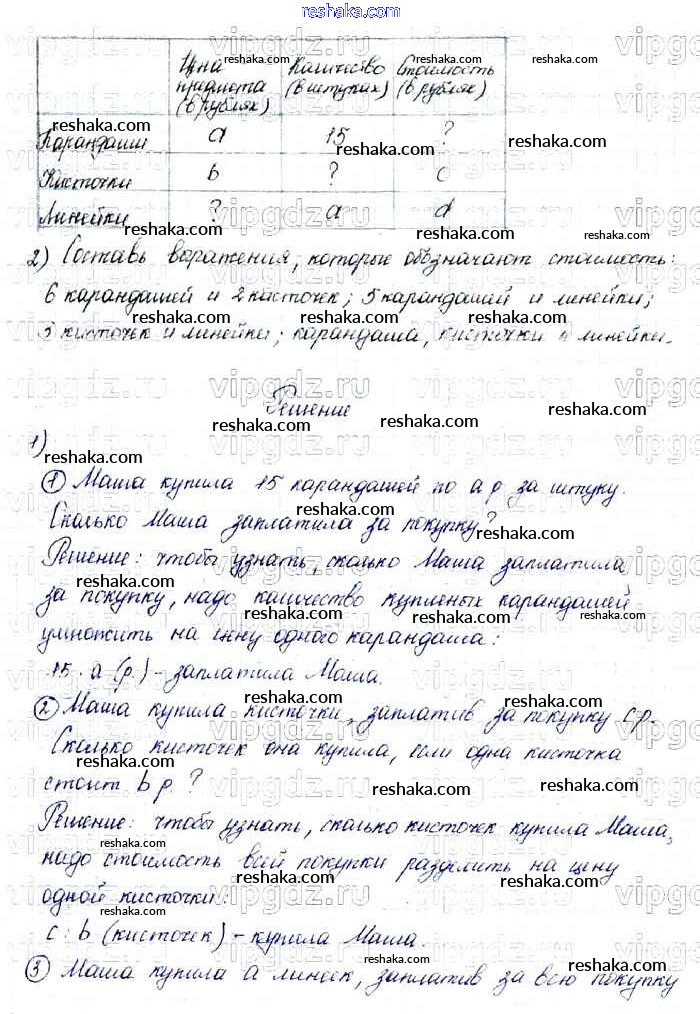 reshaka.com
Цена Количество Стоимость
предмета (в штуках) (в рублях)
(в рублях)
Карандаши a 15 ?
Кисточки b ? c
Линейки ? a d
2) Составь выражения, которые обозначают стоимость:
6 карандашей и 2 кисточек; 5 карандашей и линейки;
3 кисточек и линейки; карандаша, кисточки и линейки.
Решение
1)
① Маша купила 15 карандашей по a р за штуку.
Сколько Маша заплатила за покупку?
Решение: чтобы узнать, сколько Маша заплатила
за покупку, надо количество купленых карандашей
умножить на цену одного карандаша:
15 · a (р.) - заплатила Маша.
② Маша купила кисточки, заплатив за покупку c р.
Сколько кисточек она купила, если одна кисточка
стоит b р. ?
Решение: чтобы узнать, сколько кисточек купила Маша,
надо стоимость всей покупки разделить на цену
одной кисточки:
c : b (кисточек) - купила Маша.
③ Маша купила a линеек, заплатив за всю покупку